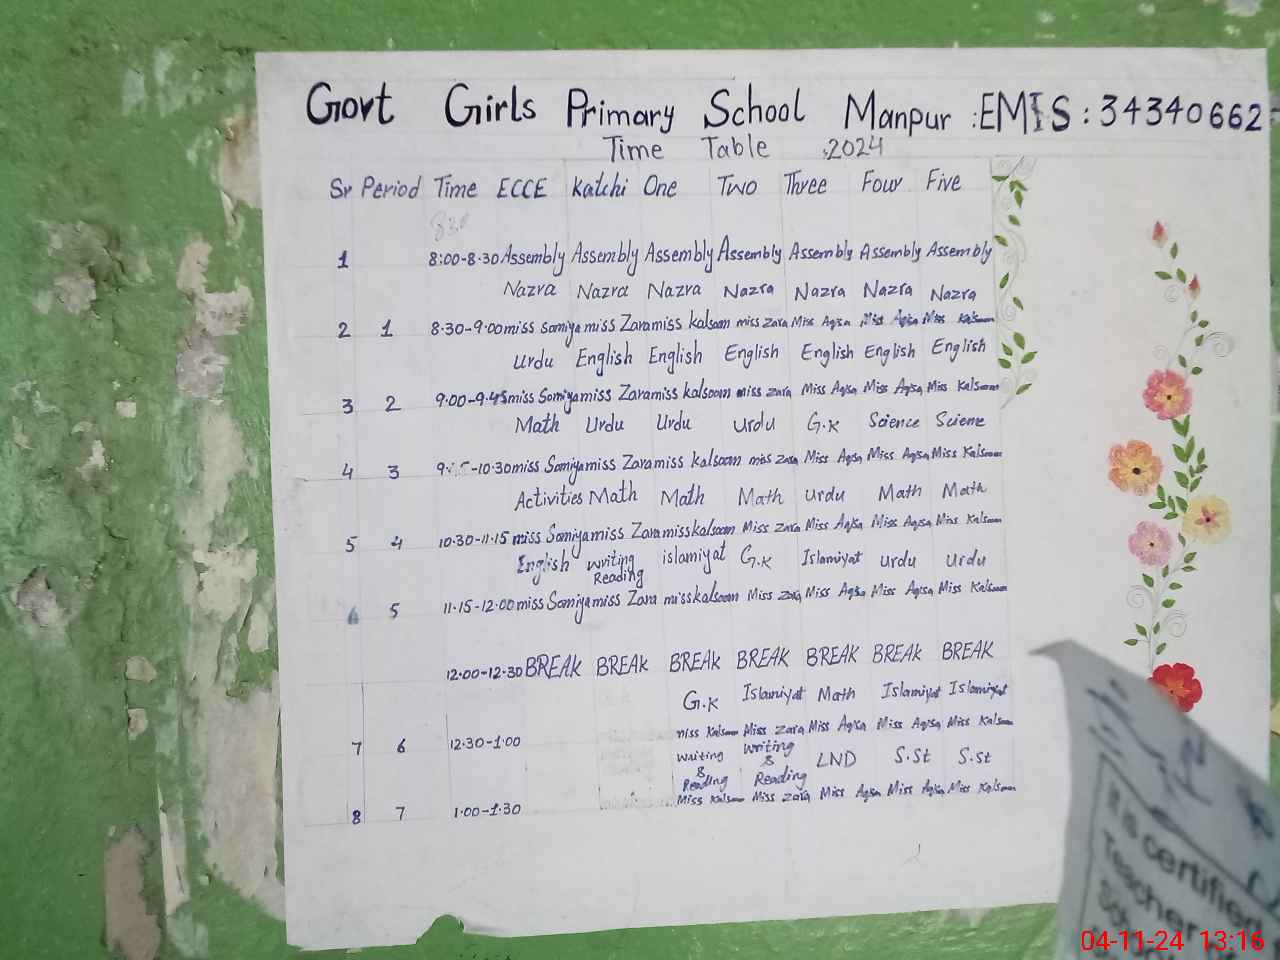 Govt Girls Primary School Manpur :EMIS:34340662
Time Table :2024
Sr Period Time ECCE Katchi One Two Three Four Five
830
1 8:00-8.30 Assembly Assembly Assembly Assembly Assembly Assembly Assembly
Nazra Nazra Nazra Nazra Nazra Nazra Nazra
2 1 8.30-9.00 miss Somiya miss Zara miss kalsoom miss zara Miss Aqsa Miss Aqsa Miss Kalsoom
Urdu English English English English English English
3 2 9.00-9.45 miss Somiya miss Zara miss kalsoom miss zara Miss Aqsa Miss Aqsa Miss Kalsoom
Math Urdu Urdu Urdu G.K Science Sciene
4 3 -10.30 miss Somiya miss Zara miss kalsoom miss zara Miss Aqsa Miss Aqsa Miss Kalsoom
Activities Math Math Math Urdu Math Math
5 4 10.30-11.15 miss Somiya miss Zara miss kalsoom Miss zara Miss Aqsa Miss Aqsa Miss Kalsoom
English writing Reading islamiyat G.K Islamiyat Urdu Urdu
6 5 11.15-12.00 miss Somiya miss Zara miss kalsoom Miss zara Miss Aqsa Miss Aqsa Miss Kalsoom
12.00-12.30 BREAK BREAK BREAK BREAK BREAK BREAK BREAK
G.K Islamiyat Math Islamiyat Islamiyat
7 6 12.30-1.00 miss Kalsoom Miss zara Miss Aqsa Miss Aqsa Miss Kalsoom
Writing & Reading writing & Reading LND S.St S.St
8 7 1.00-1.30 Miss Kalsoom Miss zara Miss Aqsa Miss Aqsa Miss Kalsoom
It is certified
Teacher
04-11-24 13:16